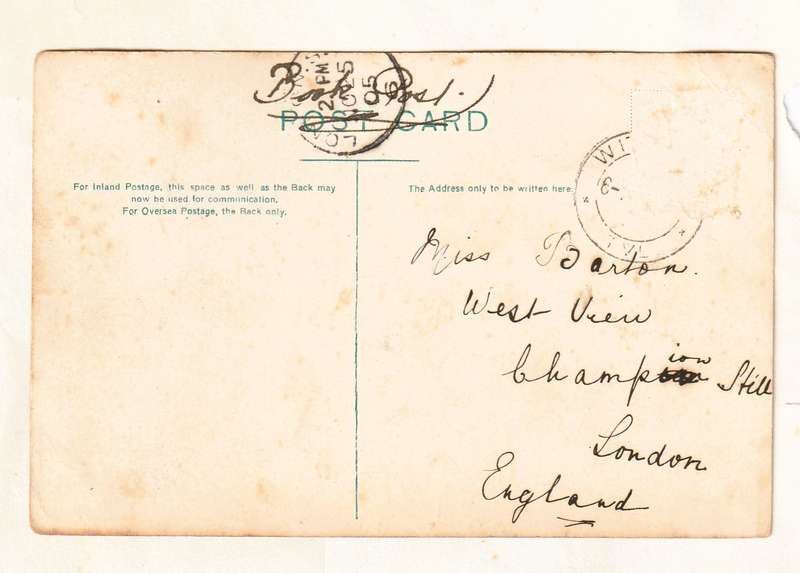 Book Post.
POST CARD
LON
2 PM
OC 25
05
For Inland Postage, this space as well as the Back may
now be used for communication,
For Oversea Postage, the Back only.
The Address only to be written here.
WI
Miss Barton.
West View
Champion Hill
London
England